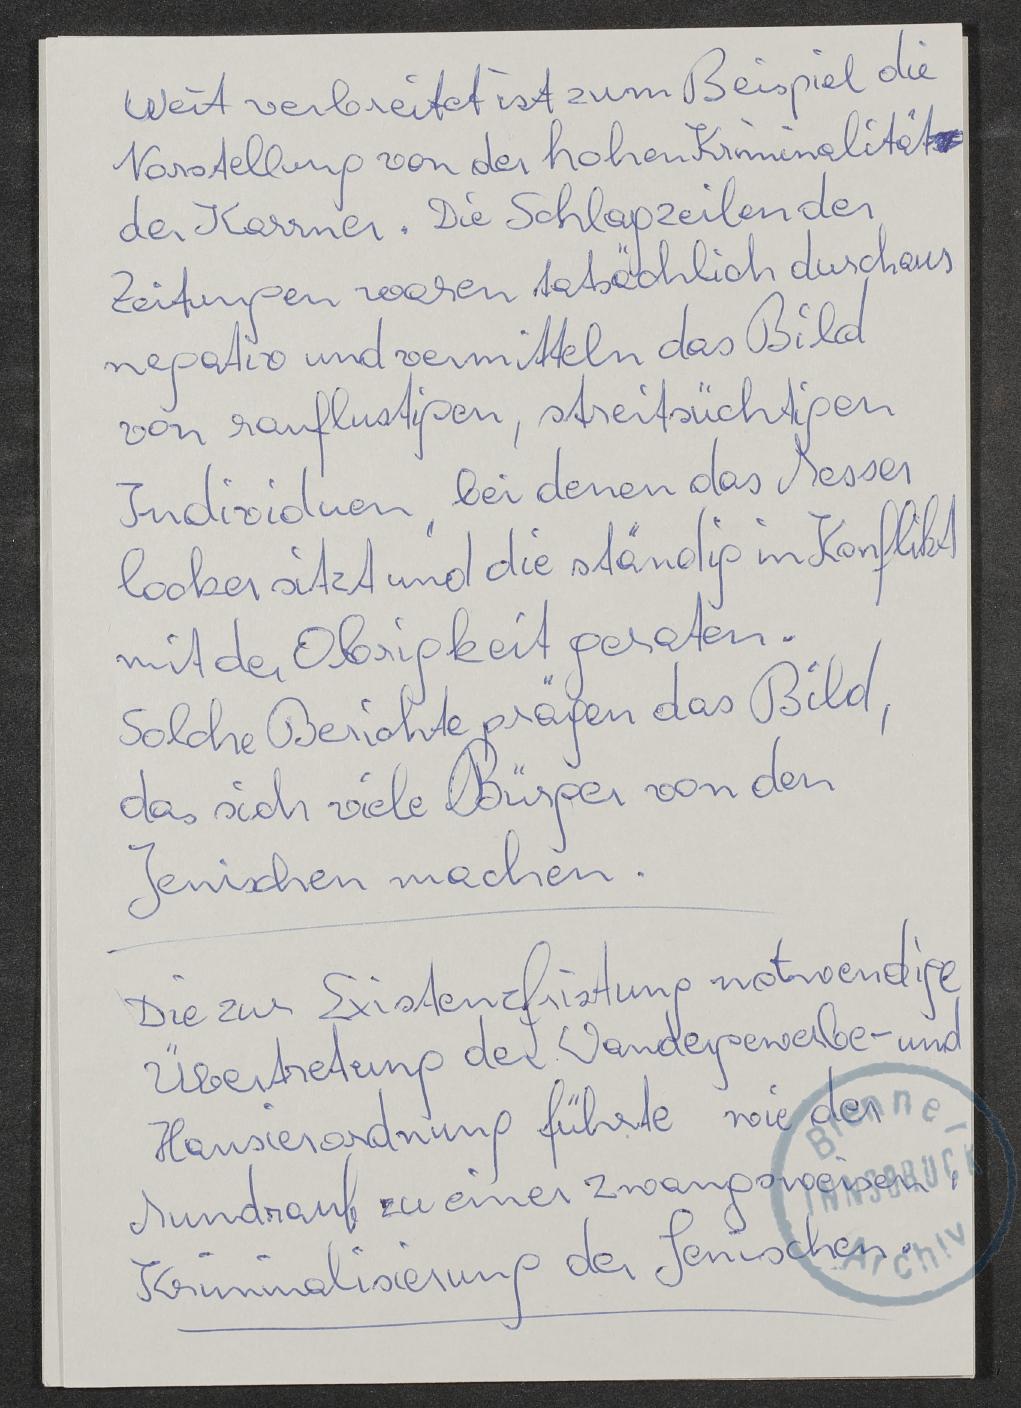 Weit verbreitet ist zum Beispiel die
Vorstellung von der hohen Kriminalität
der Karrner. Die Schlagzeilen der
Zeitungen waren tatsächlich durchaus
negativ und vermitteln das Bild
von rauflustigen, streitsüchtigen
Individuen, bei denen das Messer
locker sitzt und die ständig in Konflikt
mit der Obrigkeit geraten.
Solche Berichte prägen das Bild,
das sich viele Bürger von den
Jenischen machen.
Die zur Existenzfristung notwendige
Übertretung der Wandergewerbe- und
Hausierordnung führte wie der
Mundraub zu einer zwangsweisen
Kriminalisierung der Jenischen.
Brenner
INNSBRUCK
Archiv